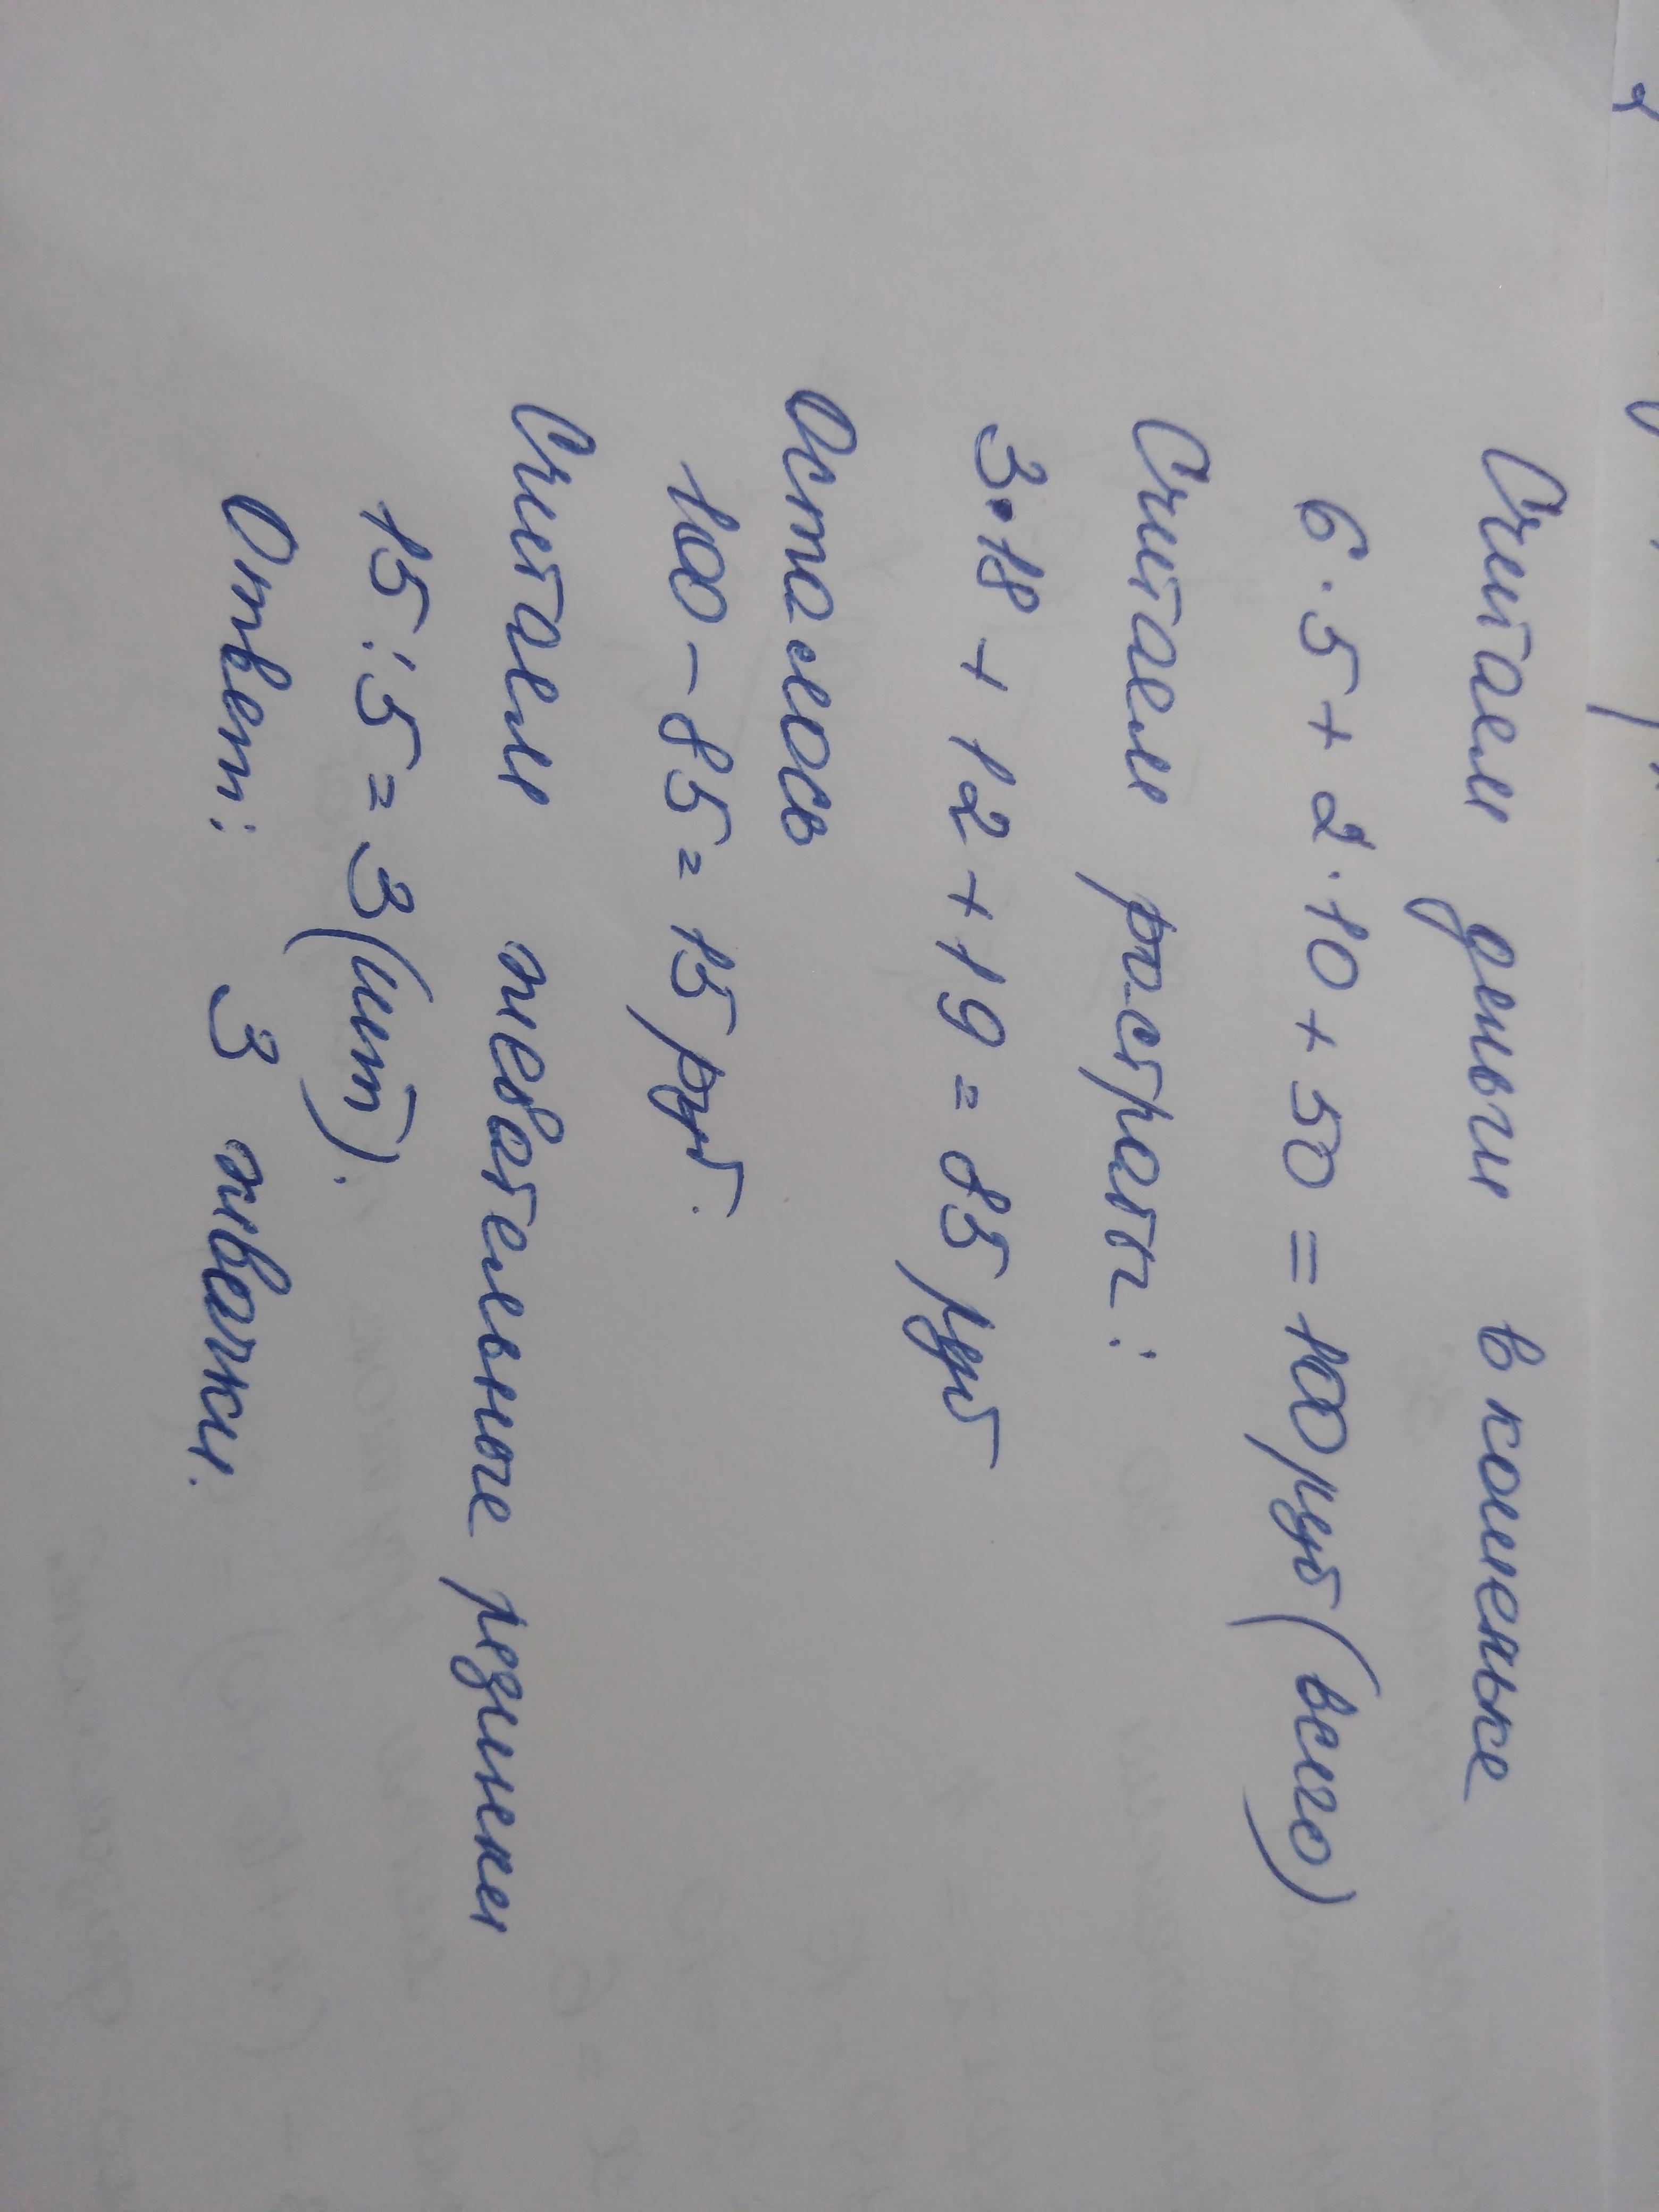 Считаем деньги в копеньке
6 · 5 + 2 · 10 + 50 = 100 руб (всего)
Считаем растраты :
3 · 18 + 12 + 19 = 85 руб
Осталось
100 – 85 = 15 руб.
Считаем жевательные резинки
15 : 5 = 3 (шт).
Ответ: 3 жвачки.